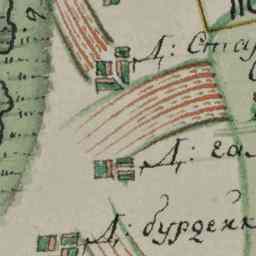 Д: Ста
Д: гал
Д: бурденк